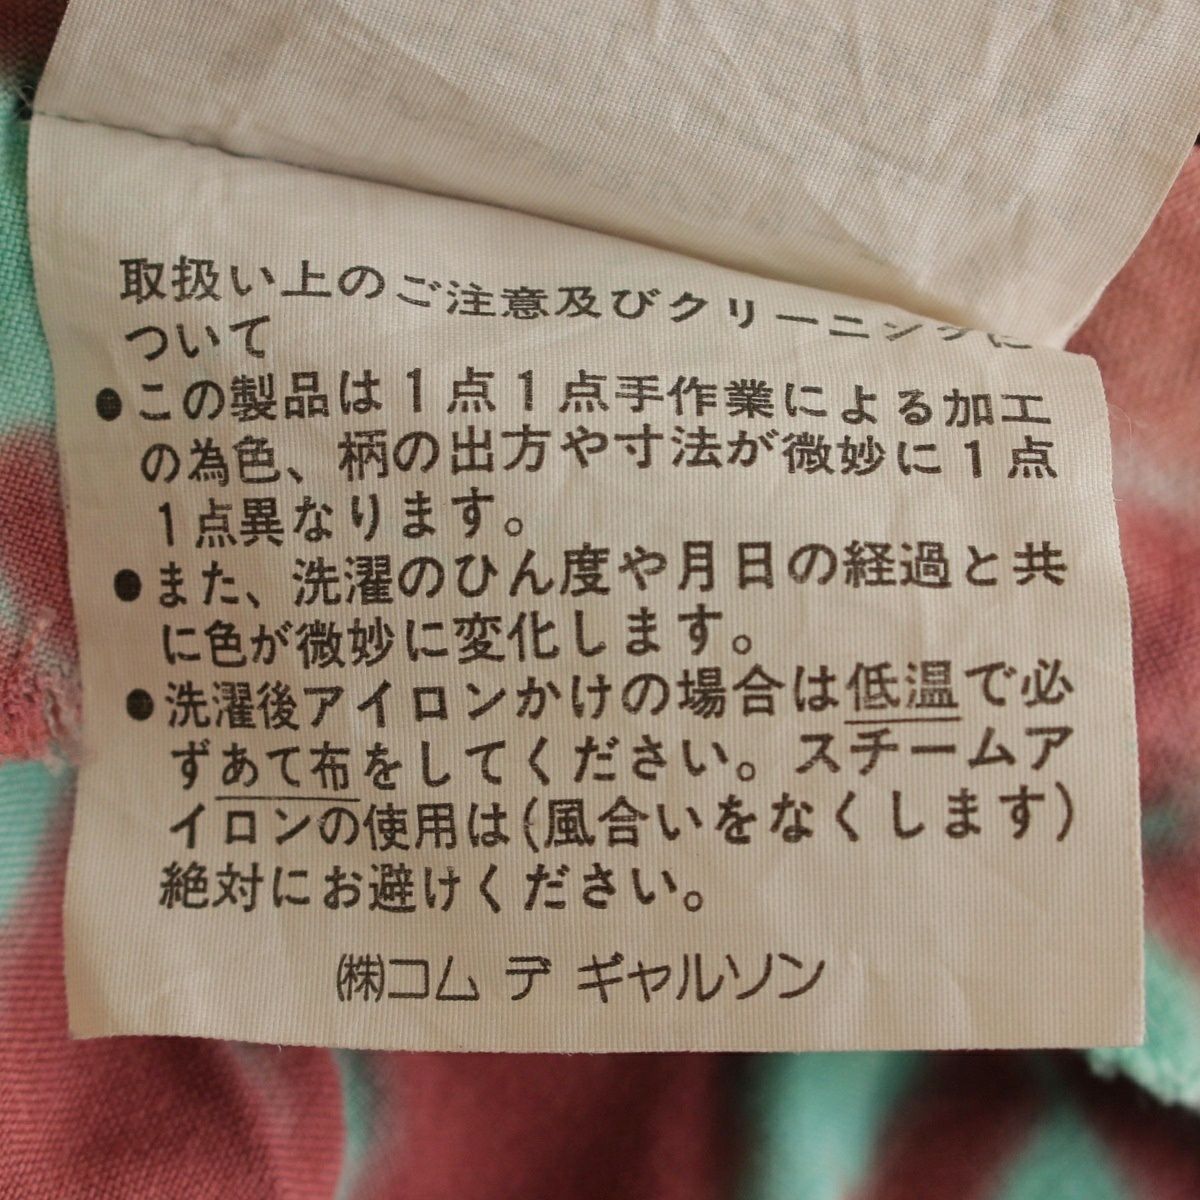 取扱い上のご注意及びクリーニングに
ついて
●この製品は1点1点手作業による加工
の為色、柄の出方や寸法が微妙に1点
1点異なります。
●また、洗濯のひん度や月日の経過と共
に色が微妙に変化します。
●洗濯後アイロンかけの場合は低温で必
ずあて布をしてください。スチームア
イロンの使用は(風合いをなくします)
絶対にお避けください。
㈱コム デ ギャルソン